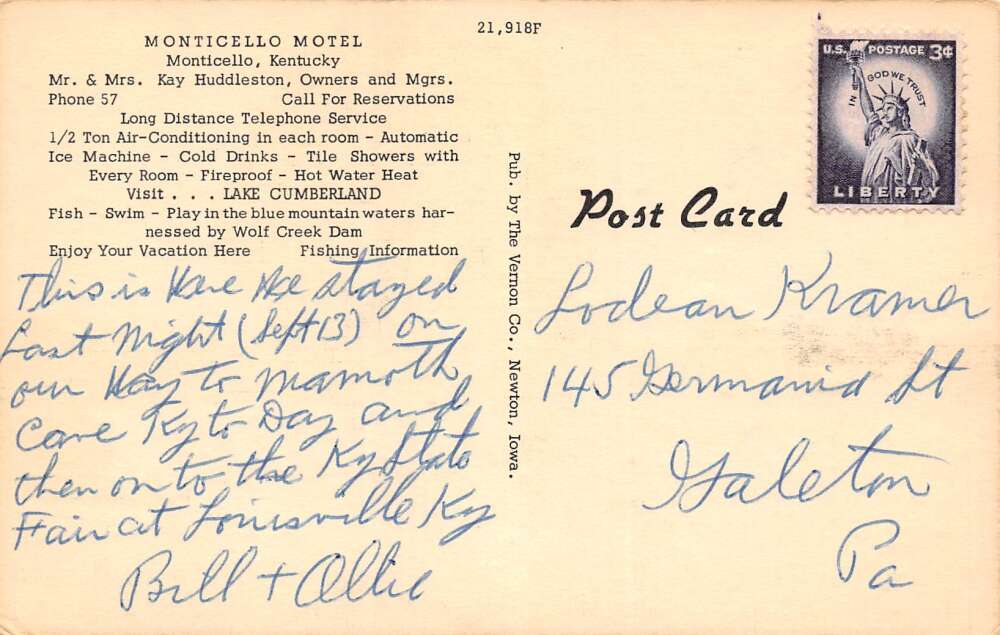 21,918F
MONTICELLO MOTEL
Monticello, Kentucky
Mr. & Mrs. Kay Huddleston, Owners and Mgrs.
Phone 57 Call For Reservations
Long Distance Telephone Service
1/2 Ton Air-Conditioning in each room - Automatic
Ice Machine - Cold Drinks - Tile Showers with
Every Room - Fireproof - Hot Water Heat
Visit . . . LAKE CUMBERLAND
Fish - Swim - Play in the blue mountain waters har-
nessed by Wolf Creek Dam
Enjoy Your Vacation Here Fishing Information
This is Here We stayed
Last Night (Sept 13) on
our Way to Mamoth
Cave Ky to Day and
then on to the Ky State
Fair at Louisville Ky
Bill + Ollie
Pub. by The Vernon Co., Newton, Iowa.
U.S. POSTAGE 3¢
IN GOD WE TRUST
LIBERTY
Post Card
Lodean Kramer
145 Germania St
Galeton
Pa